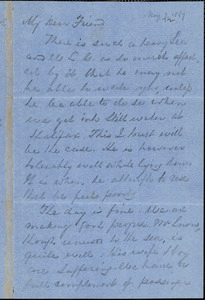 My Dear Friend
There is such a heavy Sea
and the L. G. is so much affect-
ed by it that he may not
be able to write very
he be able to do so when
we get into Still water at
Halifax. This I trust will
be the case. He is however
tolerably well while lying down
it is when he attempts to
that he feels poorly
The day is fine. We are
making good progress. Mr
though unused to the sea, is
quite well. his wife
One Suffering. We have
full complement of passenger